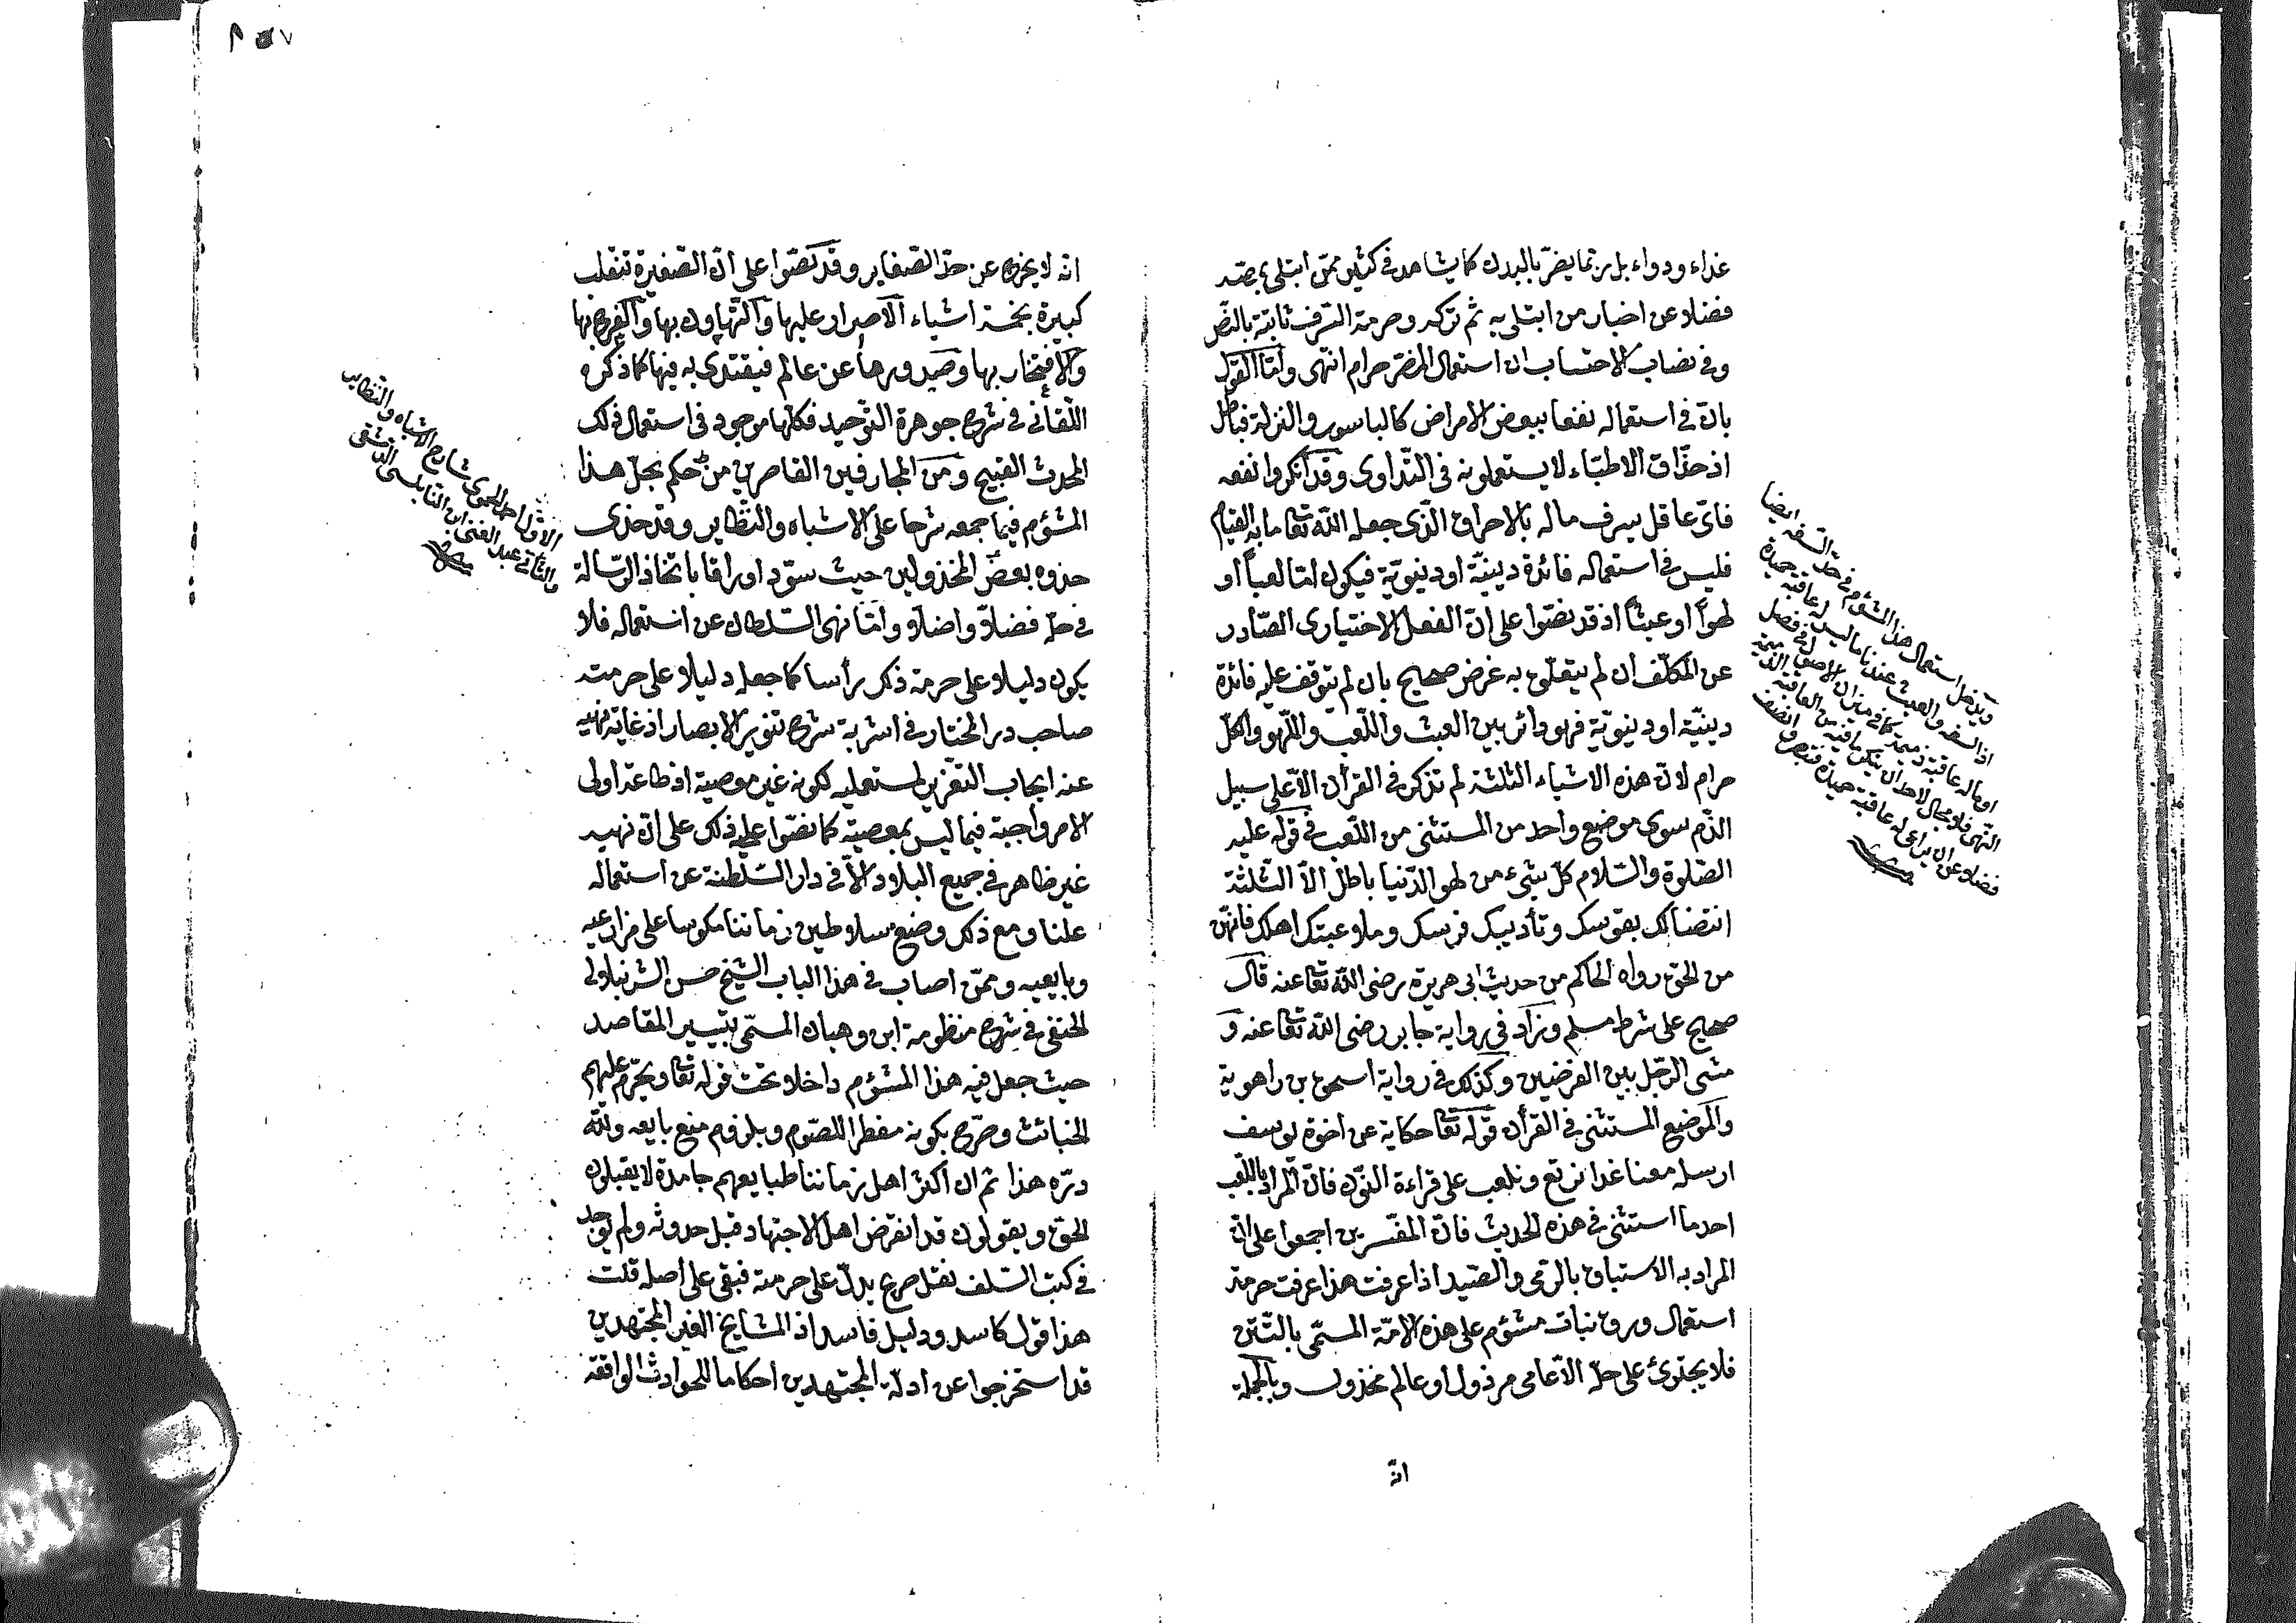 غذاء ودواء بل ربما يضر بالبدن كما يشاهد في كثير ممن ابتلى
فضلا عن اخبار من ابتلى به ثم تركه وحرمة السرف ثابتة بالنص
وفي نصاب الاحتساب ان استعمال المضر حرام انتهى وامّا القول
بانّ في استعماله نفعا ببعض الامراض كالباسور والنزلة فباطل
اذ حذّاق الاطبّاء لا يستعملونه في التّداوى وقد انكروا نفعه
فاىّ عاقل يسرف ماله بالاحراق الّذى جعله الله تعا ما به القيام
فليس في استعماله فائدة دينيّة او دنيويّة فيكون امّا لعباً او
لهواً او عبثاً اذ قد نصّوا على انّ الفعل الاختيارى الصّادر
عن المكلّف ان لم يتعلّق به غرض صحيح بان لم يتوقف عليه فائدة
دينيّة او دنيويّة فهو دائر بين العبث واللّعب واللّهو والكلّ
حرام لانّ هذه الاشياء الثلثة لم تذكر في القرأن الاّ على سبيل
الذّم سوى موضع واحد من المستثنى من اللّعب في قوله عليه
الصّلوة والسّلام كلّ شىء من لهو الدّنيا باطل الاّ الثّلثة
انتضالك بقوسك وتأديبك فرسك وملاعبتك اهلك فانهنّ
من الحقّ رواه الحاكم من حديث ابى هريرة رضى الله تعا عنه قال
صحيح على شرط مسلم وزاد في رواية جابر رضى الله تعا عنه و
مشى الرّجل بين الغرضين وكذلك في رواية اسحق بن راهوية
والموضع المستثنى في القرأن قوله تعا حكاية عن اخوة يوسف
ارسله معنا غدا نرتع ونلعب على قراءة النّون فانّ المراد باللّعب
احد ما استثنى في هذه الحديث فانّ المفسّرين اجمعوا على انّ
المراد به الاستباق بالرّمى والصّيد اذا عرفت هذا عرفت حرمة
استعمال ورق نبات مشؤم على هذه الامّة المسمّى بالتّتن
فلا يجترئ على حلّه الاّ عامى مرذول او عالم مخذول وبالجملة
انّه
ويدخل استعمال هذا المشؤم في حدّ السّفه ايضا
اذ السفه والعبث عندنا ما ليس له عاقبة حميدة
فضلا عن ان يراعى له عاقبة حميدة
انّه لا يخرج عن حدّ الصّغاير وقد نصّوا على انّ الصّغيرة تنقلب
كبيرة بخمسة اشياء الاصرار عليها والتّهاون بها والفرح بها
والافتخار بها وصدورها عن عالم فيقتدى به فيها كما ذكره
اللّقانى في شرح جوهرة التّوحيد فكلّها موجود في استعمال ذلك
المحدث القبيح ومن المجازفين القاصرين من حكم بحلّ هذا
المشؤم فيما جمعه شرحا على الاشباه والنّظاير وقد حذى
حذوه بعض المخذولين حيث سوّد اوراقا باتخاذ الرّسالة
في حلّه فضلّ واضلّ وامّا نهى السّلطان عن استعماله فلا
يكون دليلا على حرمة ذكر برأسا كما جعله دليلا على حرمته
صاحب در المختار في اشربة شرح تنوير الابصار اذ غاية نهيه
عنه ايجاب التّعزير لمستعمليه لكونه غير معصية اذ طاعة اولى
الامر واجبة فيما ليس بمعصية كما نصّوا عليه ذلك على انّ نهيه
غير ظاهر في جميع البلاد الاّ في دار السّلطنة عن استعماله
علنا ومع ذلك وضع سلاطين زماننا مكوسا على مزارعيه
وبايعيه وممّن اصاب في هذا الباب الشّيخ حسن الشّرنبلالى
الحنفى في شرح منظومة ابن وهبان المسمّى بتيسير المقاصد
حيث جعل فيه هذا المشؤم داخلا تحت قوله تعا ويحرّم عليهم
الخبائث وصرّح بكونه مفطرا للصّوم وبلزوم منع بايعه ولله
درّه هذا ثم ان اكثر اهل زماننا طبايعهم جامدة لا يقبلون
الحقّ ويقولون قد انقرض اهل الاجتهاد قبل حدوثه ولم يوجد
في كتب السّلف نقل صريح يدلّ على حرمته فبقى على اصله قلت
هذا قول كاسد ودليل فاسد اذ المشايخ الغير المجتهدين
قد استخرجوا عن ادلّة المجتهدين احكاما للحوادث الواقعة
الاوّل احمد الحموى شارح الاشباه والنّظاير
والثّانى عبد الغنى ابن النّابلسى الدّمشقى